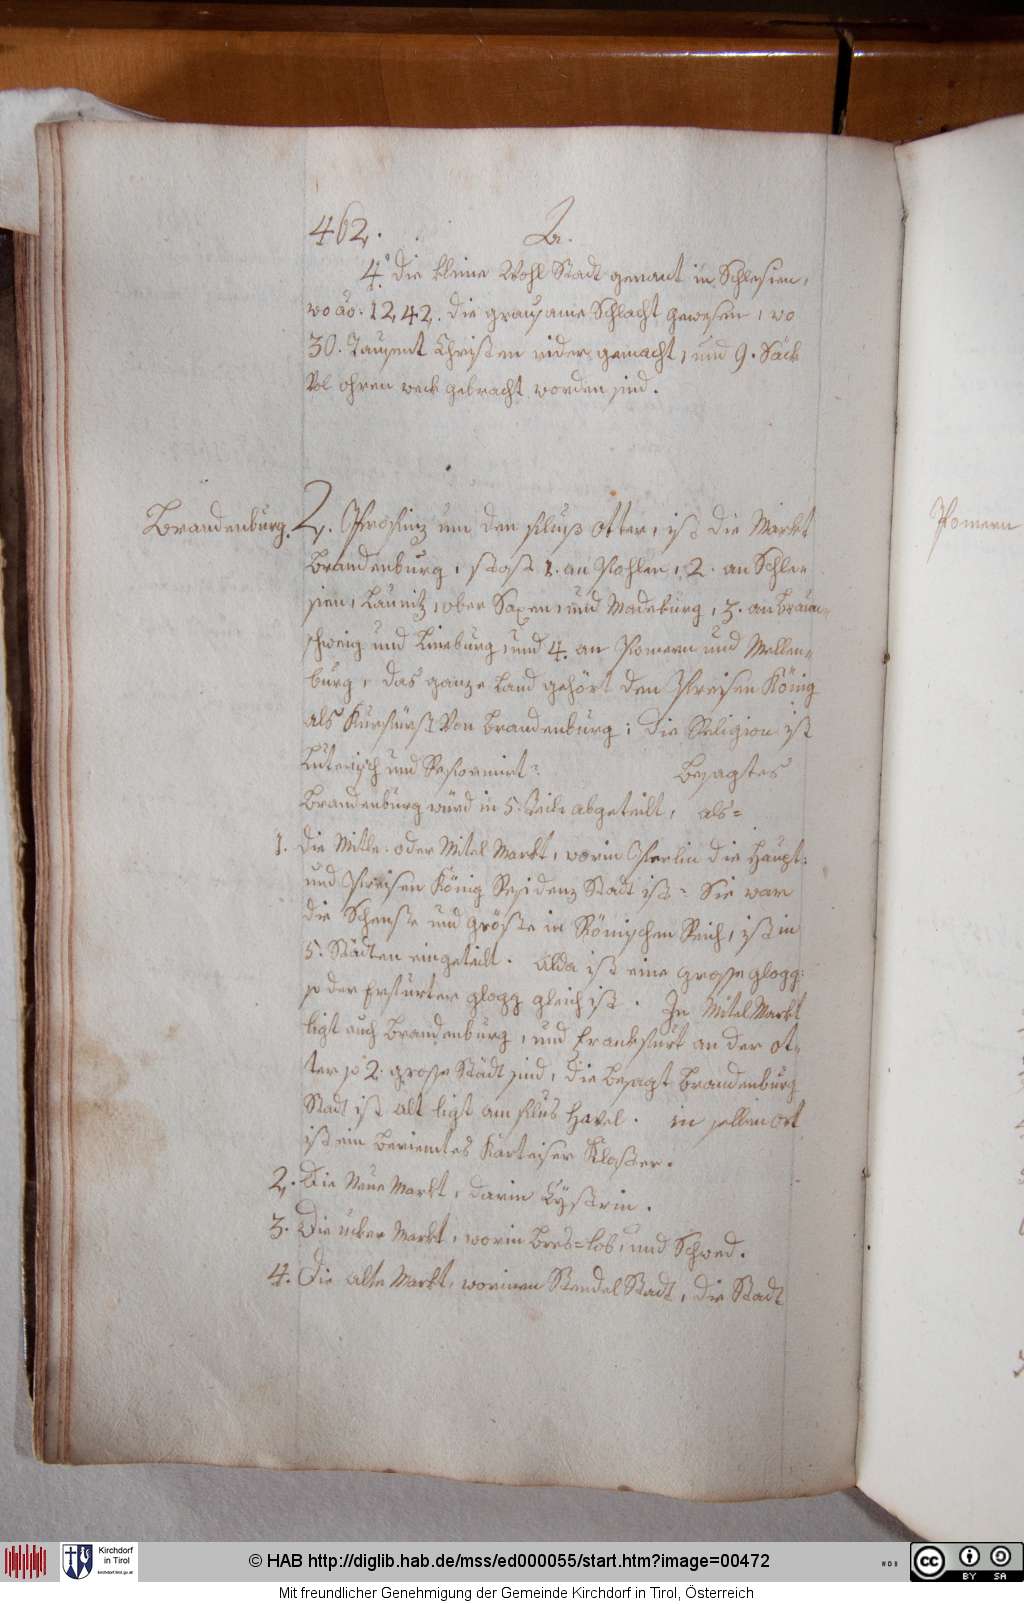 462. B.
4.° Die kleine Wohl Stadt genant in Schlesien,
wo ao: 1242. die grausame Schlacht gewesen, wo
30. Tausent Christen nider gemacht, und 9. Säck
Vol ohren weck gebracht worden sind.
Brandenburg. 2. Profinz um den fluß otter, ist die Markt
Brandenburg, stost 1. an Pohlen, 2. an Schle=
sien, Lausnitz, ober Saxen, und Madeburg, 3. an Braun=
schweig und Lineburg, und 4. an Pomern und Mellen=
burg, das ganze Land gehört den Preisen König
als Kurfürst Von Brandenburg; die Religion ist
Luterisch und Reformirt: Besagtes
Brandenburg würd in 5. Teile abgeteilt, als=
1. Die Mitle- oder Mitel Markt, worin Perlin die Haupt:
und Preisen König Residenz Stadt ist: Sie war
die Schenste und gröste in Römischen Reich, ist in
5. Städten eingeteilt. Alda ist eine grosse glogg:
so der Erfurter glogg gleich ist. In Mitel Markt
ligt auch Brandenburg, und Frankfurt an der ot=
ter so 2. grosse Städt sind, die besagt Brandenburg
Stadt ist alt ligt am flus Havel. in selben ort
ist ein beriemtes Karteiser Kloster.
2. Die Neue Markt, darin Cystrin.
3. Die ucker Markt, worin und Schwed.
4. Die alte Markt, worinen Stendel Stadt, die Stadt
Pomern
Kirchdorf
in Tirol
kirchdorf.tirol.gv.at
© HAB http://diglib.hab.de/mss/ed000055/start.htm?image=00472
WDB
cc BY SA
Mit freundlicher Genehmigung der Gemeinde Kirchdorf in Tirol, Österreich